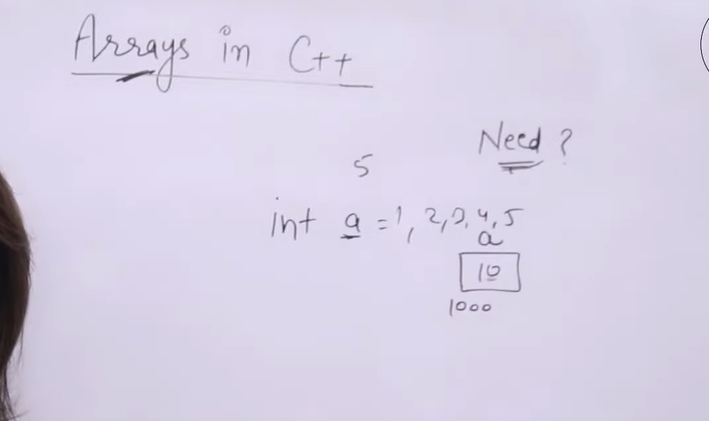 Arrays in C++
Need?
5
int a = 1, 2, 3, 4, 5
a
10
1000